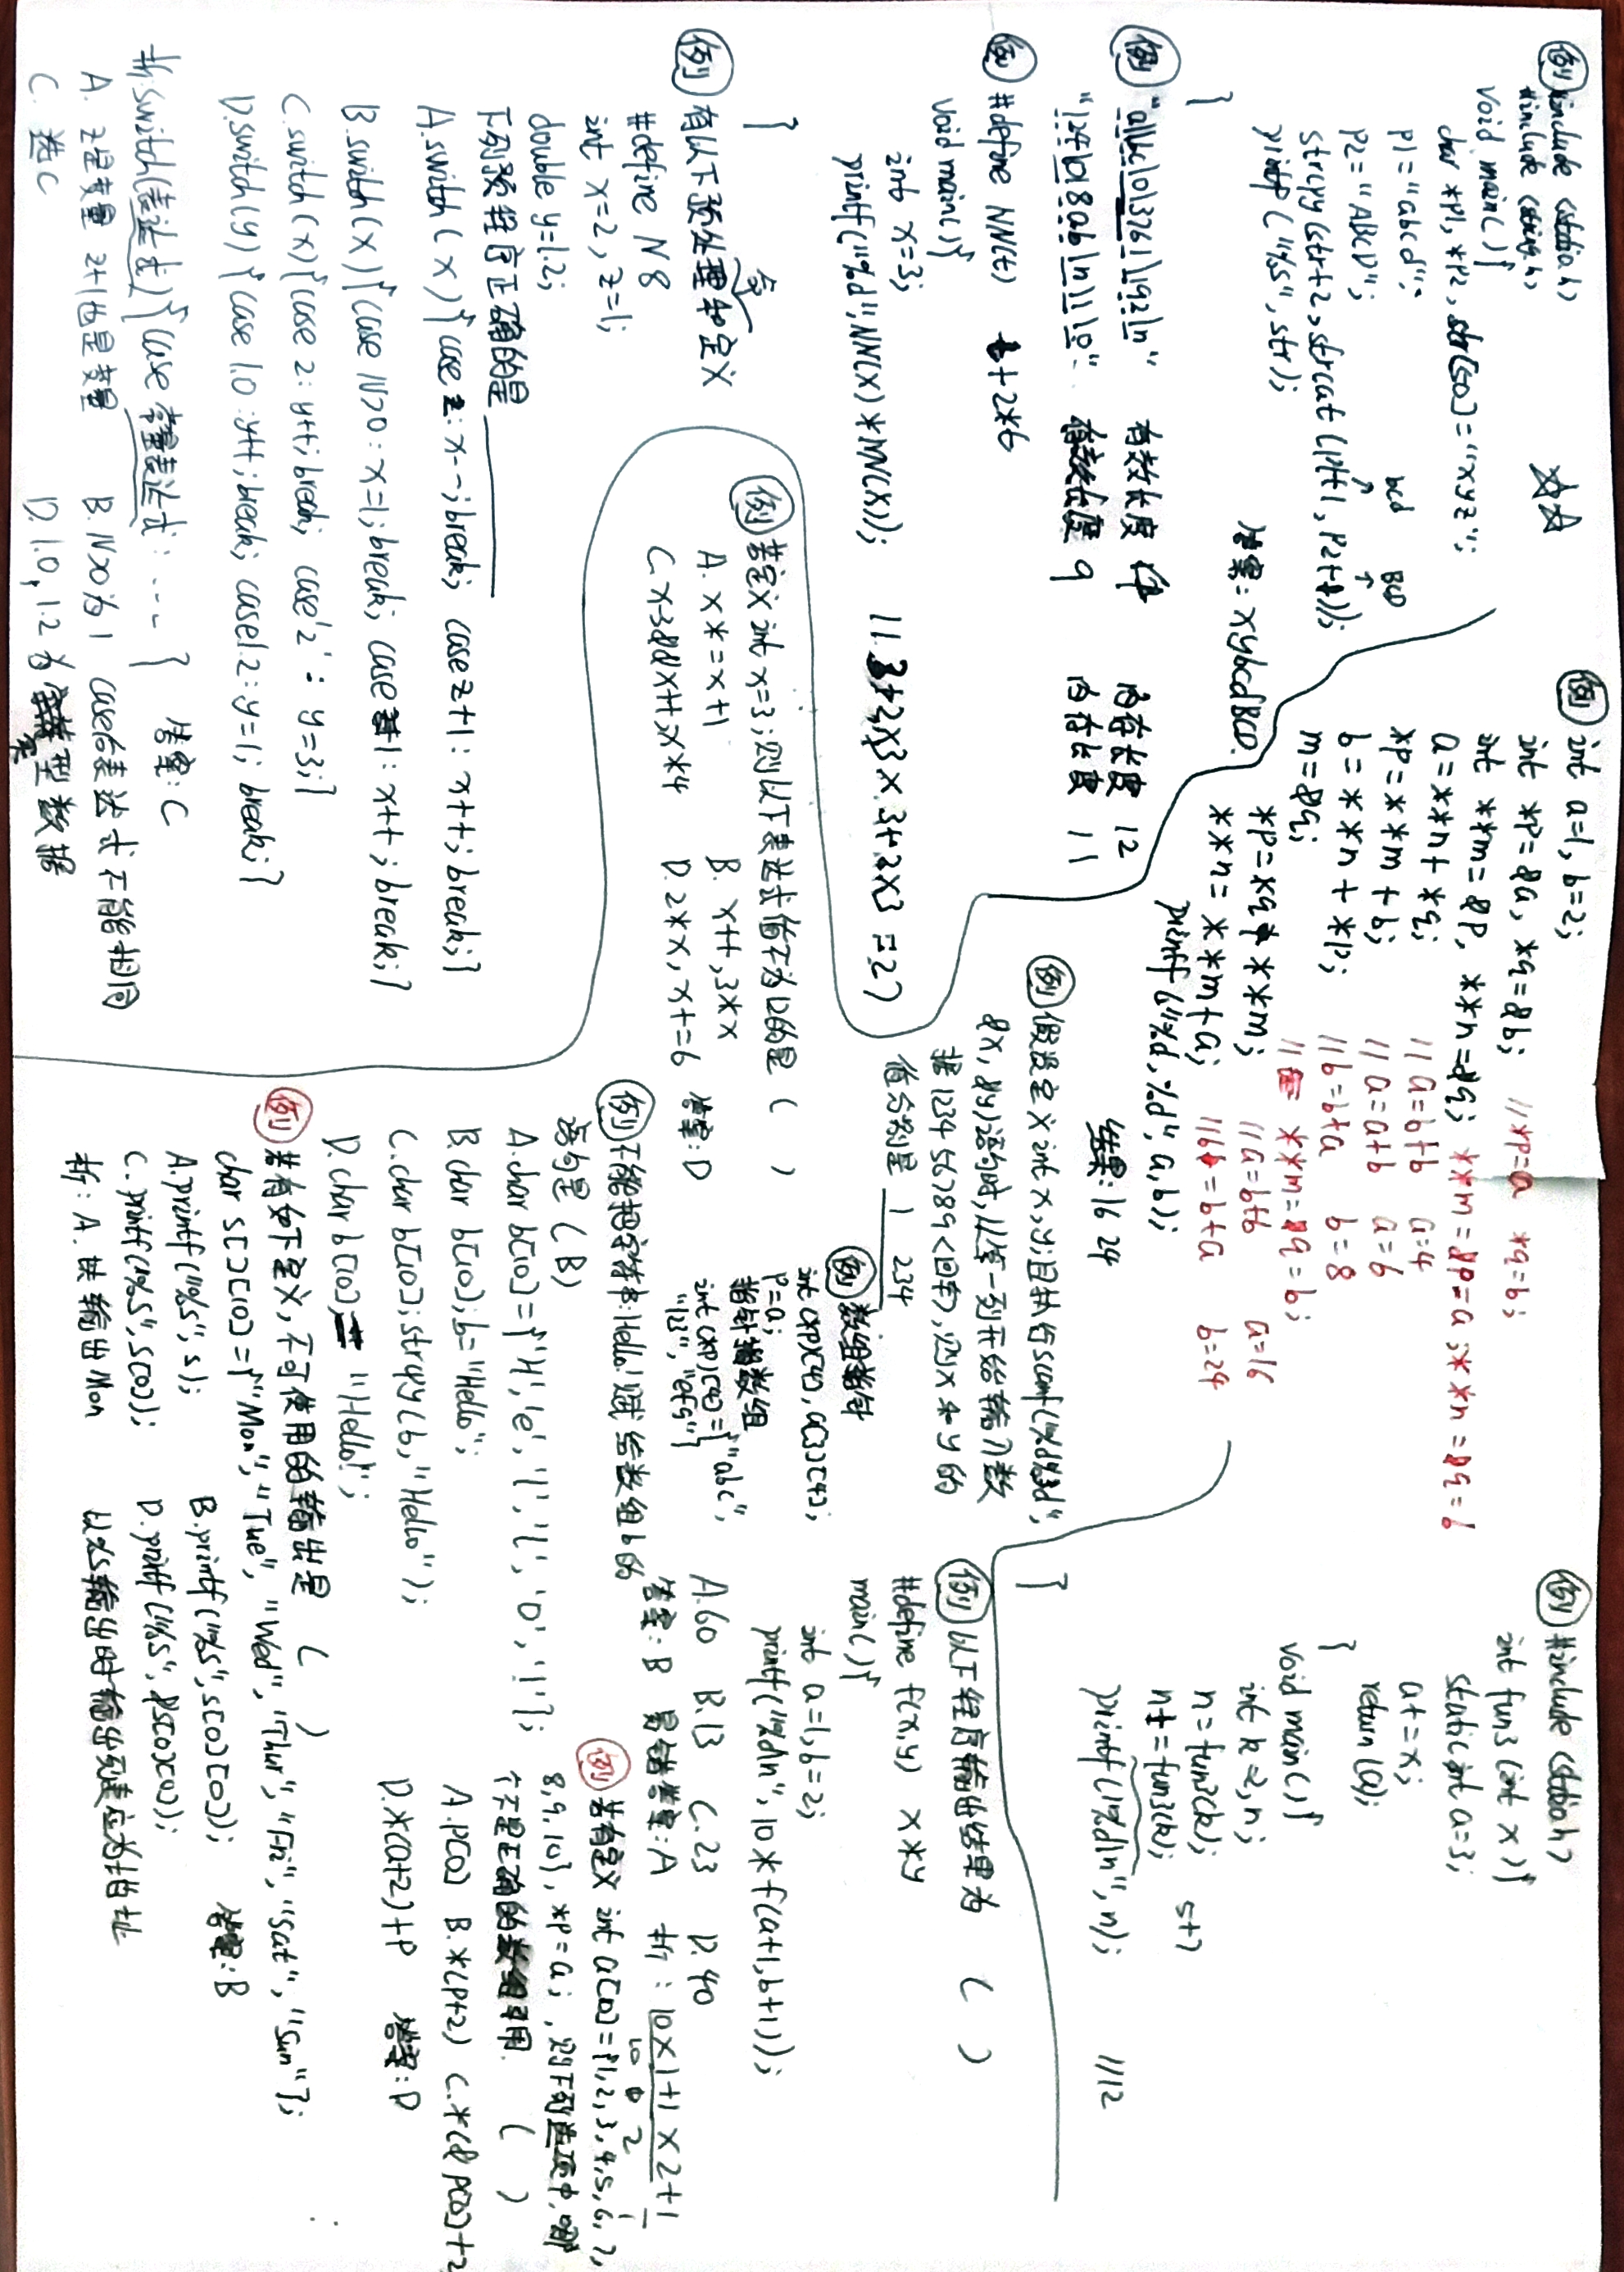 例 #include <stdio.h>
#include <string.h>
void main(){
char *p1, *p2, str[50]="xyz";
p1="abcd";
p2="ABCD";
bcd BCD
strcpy(str+2, strcat(p1+1, p2+1));
printf("%s", str);
答案: xybcdBCD.
}
例 "a\\bc\0\3761\192\n" 有效长度 4 内存长度 12
"124\018ab\n11\0" 有效长度 9 内存长度 11
例 #define NN(t) t+2*t
void main(){
int x=3;
printf("%d",NN(x)*NN(x)); // 3+2×3×3+2×3=27
}
令
例 有以下预处理和定义
#define N 8
int x=2, z=1;
double y=1.2;
下列预程序正确的是
A.switch(x){case z: x--; break; case z+1: x++; break;}
B.switch(x){case N>0: x=1; break; case 1: x++; break;}
C.switch(x){case 2: y++; break; case '2': y=3;}
D.switch(y){case 1.0: y++; break; case 1.2: y=1; break;}
析:switch(表达式){case 常量表达式: ...... } 答案: C
A. z是变量 z+1也是变量 B. N>0为1 case后表达式不能相同
C. 选C D. 1.0, 1.2为实型数据
例 int a=1, b=2;
int *p=&a, *q=&b; //*p=a *q=b;
int **m=&p, **n=&q; **m=&p=a;**n=&q=b
a=**n+*q; // a=b+b a=4
*p=**m+b; // a=a+b a=6
b=**n+*p; //b=b+a b=8
m=&q; // **m=&q=b;
*p=*q+**m; //a=b+b a=16
**n=**m+a; //b=b+a b=24
printf("%d,%d", a,b);
结果: 16 24
例 假设定义int x,y;且执行scanf("%d%3d",
&x, &y)语句时,从第一列开始输入数
据1234 56789<回车>,则x和y的
值分别是 1 234
例 数组指针
int (*p)[4], a[3][4];
p=a;
指针指数组
int (*p)[4]={"abc",
"123", "efg"}
例 若定义int x=3;则以下表达式值不为12的是 ( )
A. x*=x+1 B. x++,3*x
C. x-3&&x++,x*4 D. 2*x, x+=6 答案: D
例 不能把字符串:Hello!赋给数组b的
语句是 (B)
A.char b[10]={'H','e','l','l','o','!'};
B. char b[10]; b="Hello";
C. char b[10]; strcpy(b,"Hello");
D. char b[10]= "Hello!";
例 若有如下定义,不可使用的输出是 ( )
char s[][10]={"Mon","Tue","Wed","Thur","Fri","Sat","Sun"};
A.printf("%s", s); B.printf("%s",s[0][0]); 答案: B
C. printf("%s",s[0]); D. printf("%s",&s[0][0]);
析: A. 块输出Mon 以%s输出时输出列表应为地址
例 #include <stdio.h>
int fun3(int x){
static int a=3;
a+=x;
return(a);
}
void main(){
int k=2,n;
n=fun3(k);
n+=fun3(k); 5+7
printf("%d\n",n); //12
}
例 以下程序输出结果为 ( )
#define f(x,y) x*y
main(){
int a=1,b=2;
printf("%d\n", 10*f(a+1,b+1));
A.60 B.13 C.23 D.40
答案: B 易错答案: A 析: 10×1+1×2+1
10 2 1
例 若有定义 int a[10]={1,2,3,4,5,6,7,
8,9,10}, *p=a; ,则下列选项中,哪
个不是正确的数组引用. ( )
A.p[0] B.*(p+2) C.*(&p[0]+2
D.*(a+2)+p 答案: D